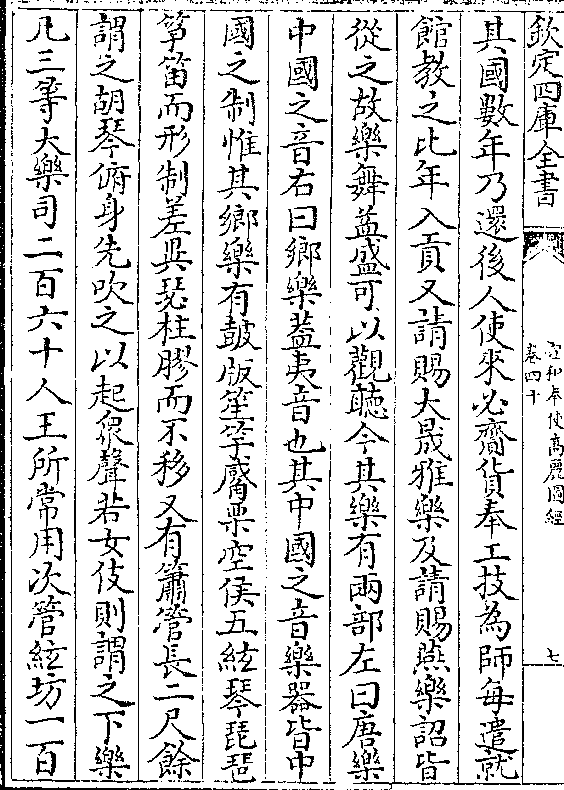 欽定四庫全書
宣和奉使高麗圖經
卷四十
七
其國數年乃還後人使來必齎貨奉工技為師每遣就
館教之比年入貢又請賜大晟雅樂及請賜燕樂詔皆
從之故樂舞益盛可以觀聽今其樂有兩部左曰唐樂
中國之音右曰鄉樂葢夷音也其中國之音樂器皆中
國之制惟其鄉樂有鼓版笙竽觱栗空侯五絃琴琵琶
箏笛而形制差異瑟柱膠而不移又有簫管長二尺餘
謂之胡琴俯身先吹之以起衆聲若女伎則謂之下樂
凡三等大樂司二百六十人王所常用次管絃坊一百